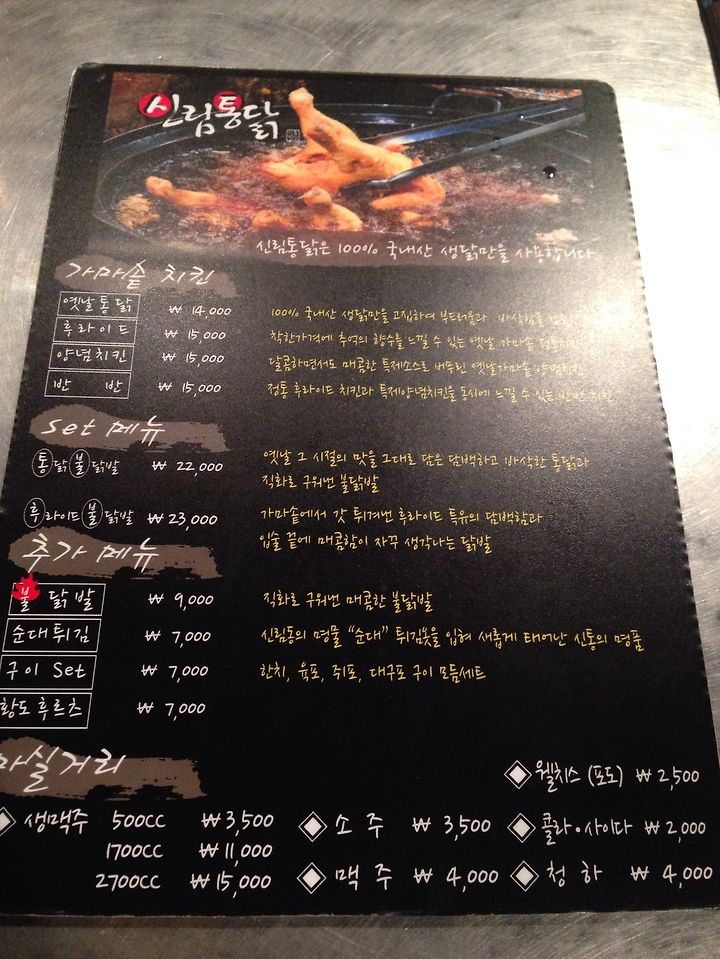 신림통닭
신림통닭은 100% 국내산 생닭만을 사용합니다
가마솥 치킨
옛날통닭 ₩ 14,000 100% 국내산 생닭만을 고집하여 부드러움과 바삭함을
후라이드 ₩ 15,000 착한가격에 추억의 향수를 느낄 수 있는 옛날 가마솥
양념치킨 ₩ 15,000 달콤하면서도 매콤한 특제소스로 버무린 옛날가마솥 양념치킨
반 반 ₩ 15,000 정통 후라이드 치킨과 특제양념치킨을 동시에 느낄 수 있는 반반 치킨
set 메뉴
통닭불닭발 ₩ 22,000 옛날 그 시절의 맛을 그대로 담은 담백하고 바삭한 통닭과
직화로 구워낸 불닭발
후라이드불닭발 ₩ 23,000 가마솥에서 갓 튀겨낸 후라이드 특유의 담백함과
입술 끝에 매콤함이 자꾸 생각나는 닭발
추가 메뉴
불 닭발 ₩ 9,000 직화로 구워낸 매콤한 불닭발
순대튀김 ₩ 7,000 신림동의 명물 "순대" 튀김옷을 입혀 새롭게 태어난 신통의 명품
구이 Set ₩ 7,000 한치, 육포, 쥐포, 대구포 구이 모듬세트
황도후르츠 ₩ 7,000
마실거리
웰치스 (포도) ₩ 2,500
생맥주 500cc ₩3,500 소 주 ₩ 3,500 콜라•사이다 ₩ 2,000
1700cc ₩11,000
2700cc ₩15,000 맥 주 ₩ 4,000 청 하 ₩ 4,000